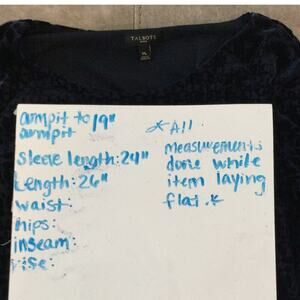 TALBOTS
armpit to 19"
armpit
sleeve length: 24"
Length: 26"
waist:
hips:
inseam:
rise:
*All
measurements
done while
item laying
flat.*